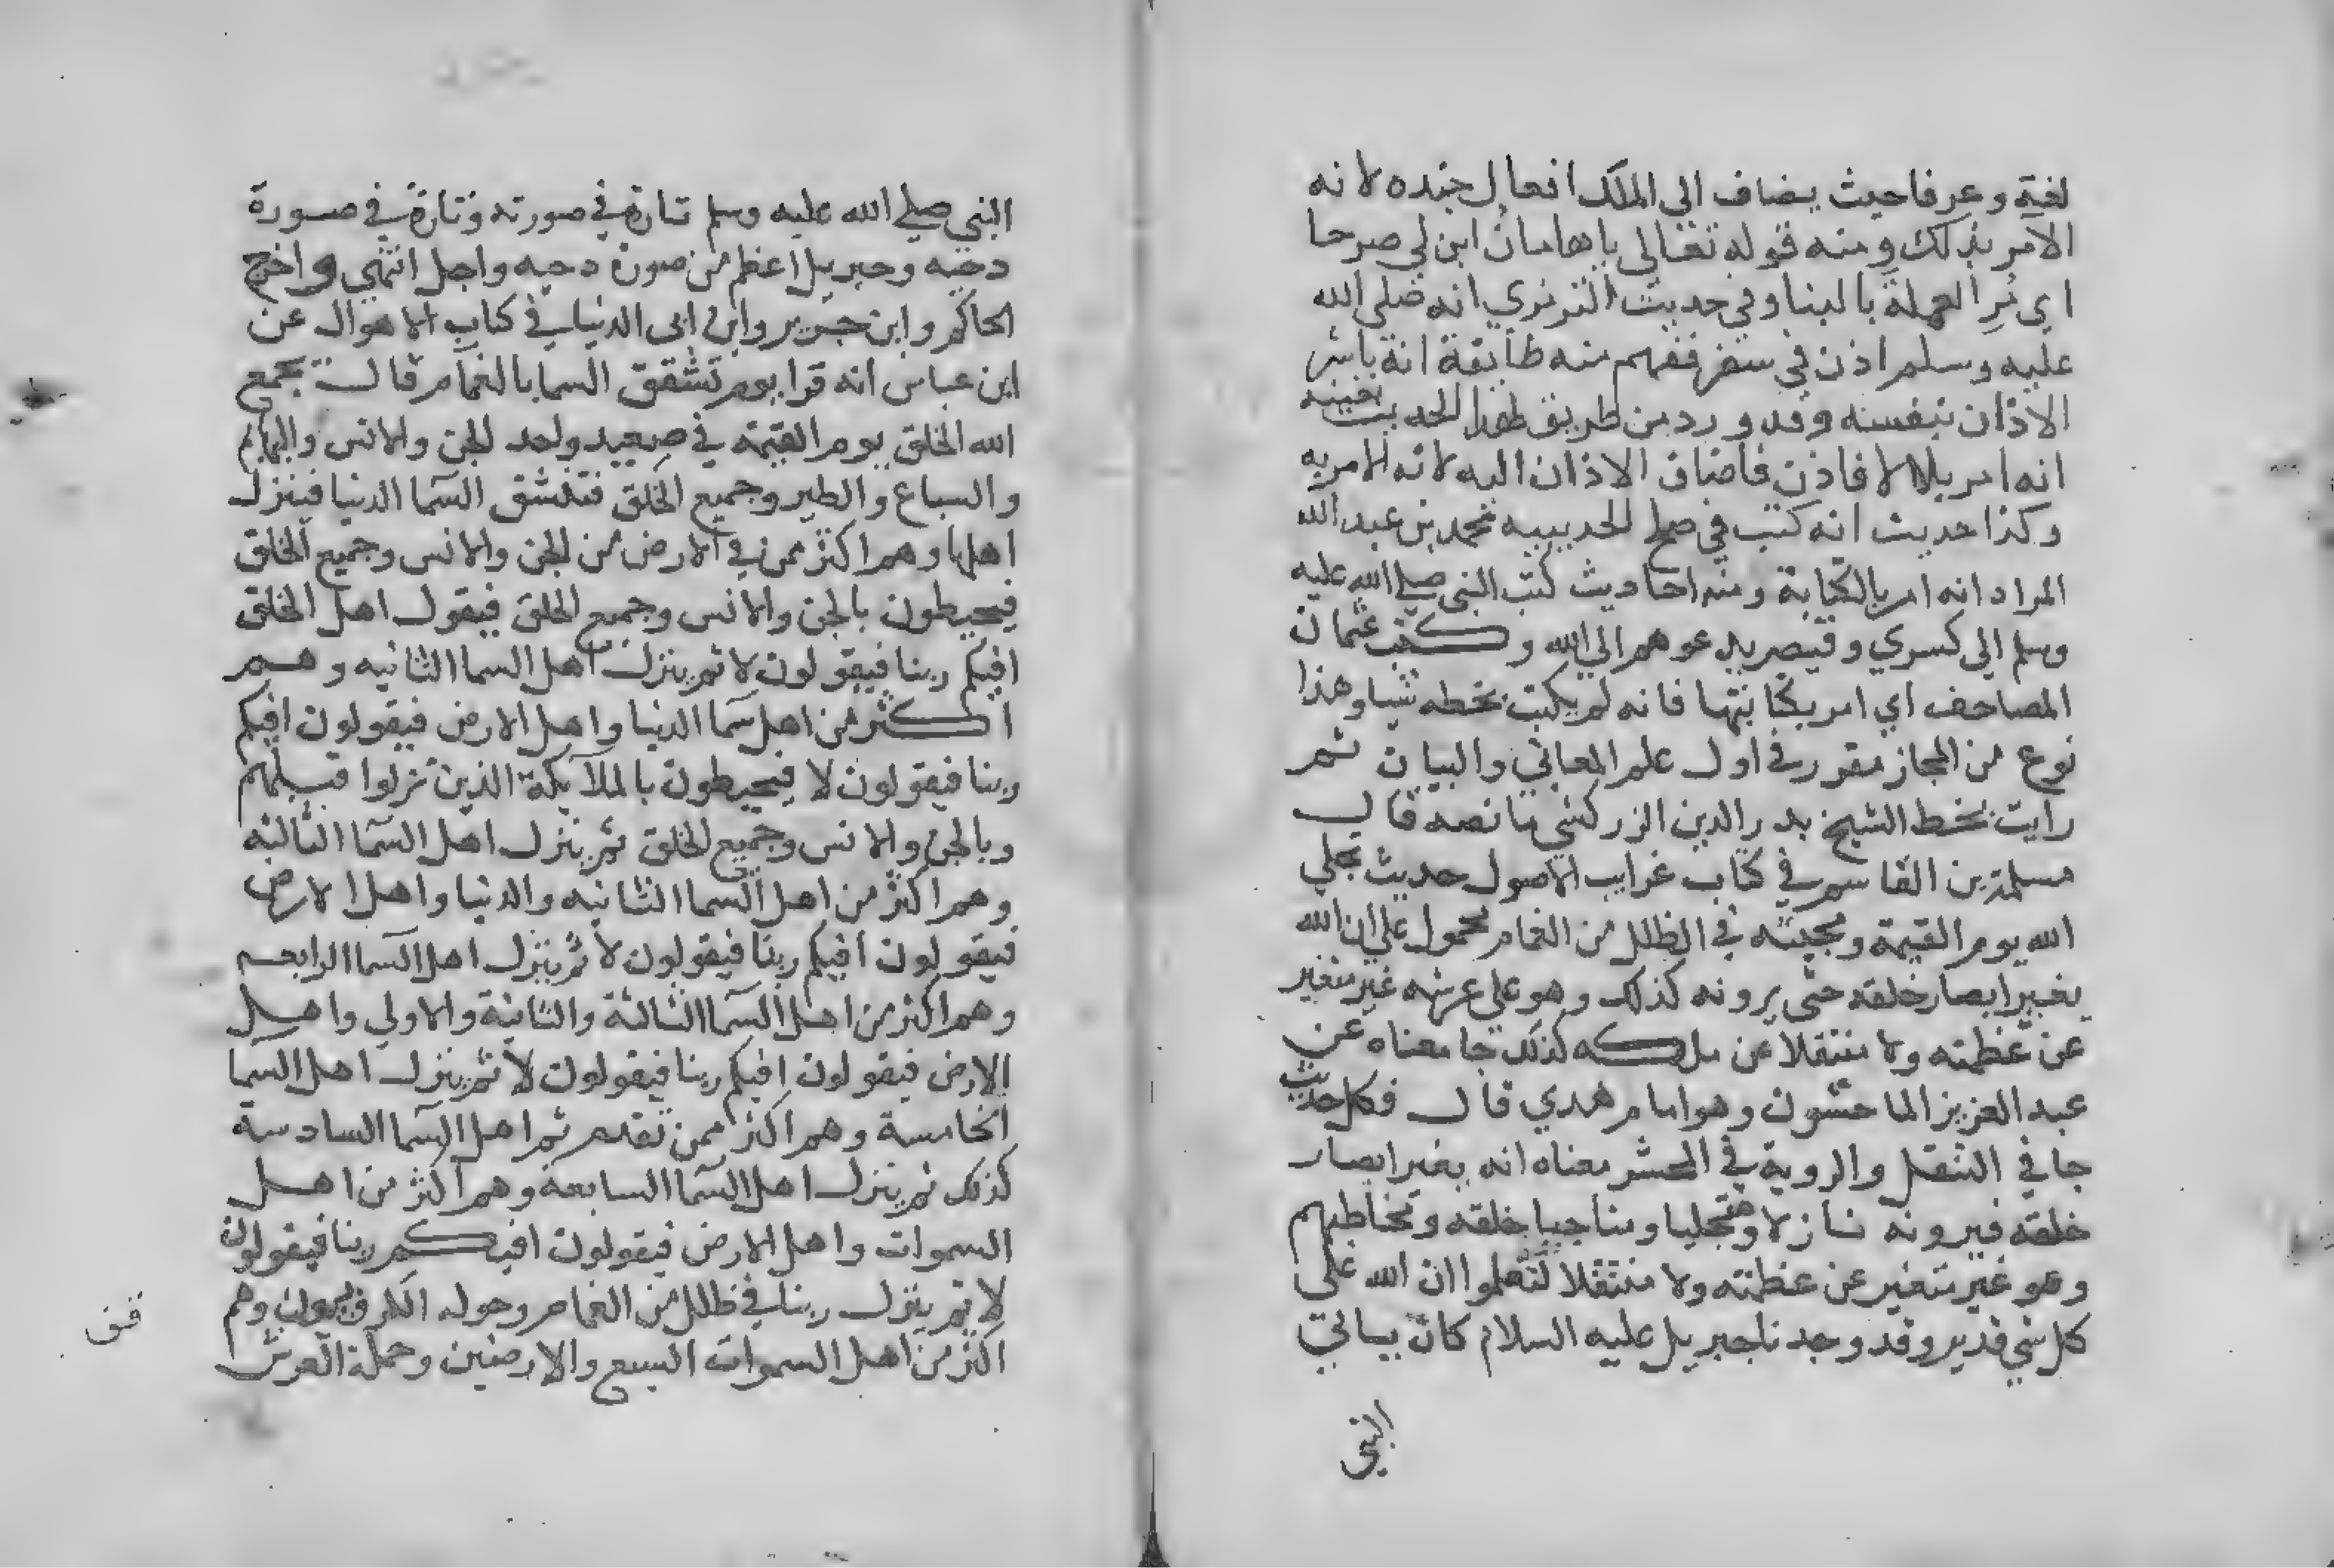 لغة وعرفا حيث يضاف الى الملك افعال جنده لانه
الامر بذلك ومنه قوله تعالى ياهامان ابن لي صرحا
اى مُرِ العملة بالبنا وفي حديث الترمذي انه صلى الله
عليه وسلم اذن في سفر ففهم منه طايفة انه باشر
الاذان بنفسه وقد ورد من طريق لهذا الحديث بعينه
انه امر بلالا فاذن فاضاف الاذان اليه لانه الامر به
وكذا حديث انه كتب في صلح الحديبيه محمد بن عبد الله
المراد انه امر بالكتابة ومنه احاديث كتب النبي صلى الله عليه
وسلم الى كسري وقيصر يدعوهم الي الله وكتب عثمان
المصاحف اي امر بكتابتها فانه لم يكتب بخطه شيا وهذا
نوع من المجاز مقرر في اول علم المعاني والبيان ثم
رايت بخط الشيخ بدر الدين الزركشي ما نصه قال
مسلمة بن القاسم في كتاب غرايب الاصول حديث تجلي
الله يوم القيمة ومجيئه في الظلل من الغمام محمول على ان الله
يغير ابصار خلقه حتى يرونه كذلك وهو على عرشه غير متغير
عن عظمته ولا منتقلا عن ملكه كذلك جا معناه عن
عبد العزيز الماحشون وهو امام هدي قال فكل حديث
جا في التنقل والروية في المحشر معناه انه يغير ابصار
خلقه فيرونه نازلا ومتجليا ومناجيا خلقه وتخاطبهم
وهو غير متغير عن عظمته ولا منتقلا لتعلموا ان الله على
كل شي قدير وقد وجدنا جبريل عليه السلام كان ياتي
النبي
النبي صلى الله عليه وسلم تارة في صورته وتارة في صورة
دحيه وجبريل اعظم من صورة دحيه واجل انتهى واخرج
الحاكم وابن جرير وابن ابى الدنيا في كتاب الاهوال عن
ابن عباس انه قرا يوم تشقق السما بالغمام قال يجمع
الله الخلق يوم القيمة في صعيد واحد الجن والانس والبهايم
والسباع والطير وجميع الخلق فتنشق السما الدنيا فينزل
اهلها وهم اكثر ممن في الارض من الجن والانس وجميع الخلق
فيحيطون بالجن والانس وجميع الخلق فيقول اهل الخلق
افيكم ربنا فيقولون لا ثم ينزل اهل السما الثانيه وهم
اكثر من اهل سما الدنيا واهل الارض فيقولون افيكم
ربنا فيقولون لا فيحيطون بالملايكة الذين نزلوا قبلهم
وبالجن والانس وجميع الخلق ثم ينزل اهل السما الثالثه
وهم اكثر من اهل السما الثانيه والدنيا واهل الارض
فيقولون افيكم ربنا فيقولون لا ثم ينزل اهل السما الرابعه
وهم اكثر من اهل السما الثالثة والثانية والاولي واهل
الارض فيقولون افيكم ربنا فيقولون لا ثم ينزل اهل السما
الخامسة وهم اكثر ممن تقدم ثم اهل السما السادسة
كذلك ثم ينزل اهل السما السابعة وهم اكثر من اهل
السموات واهل الارض فيقولون افيكم ربنا فيقولون
لا ثم ينزل ربنا في ظلل من الغمام وحوله الكروبيون وهم
اكثر من اهل السموات السبع والارضين وحملة العرش